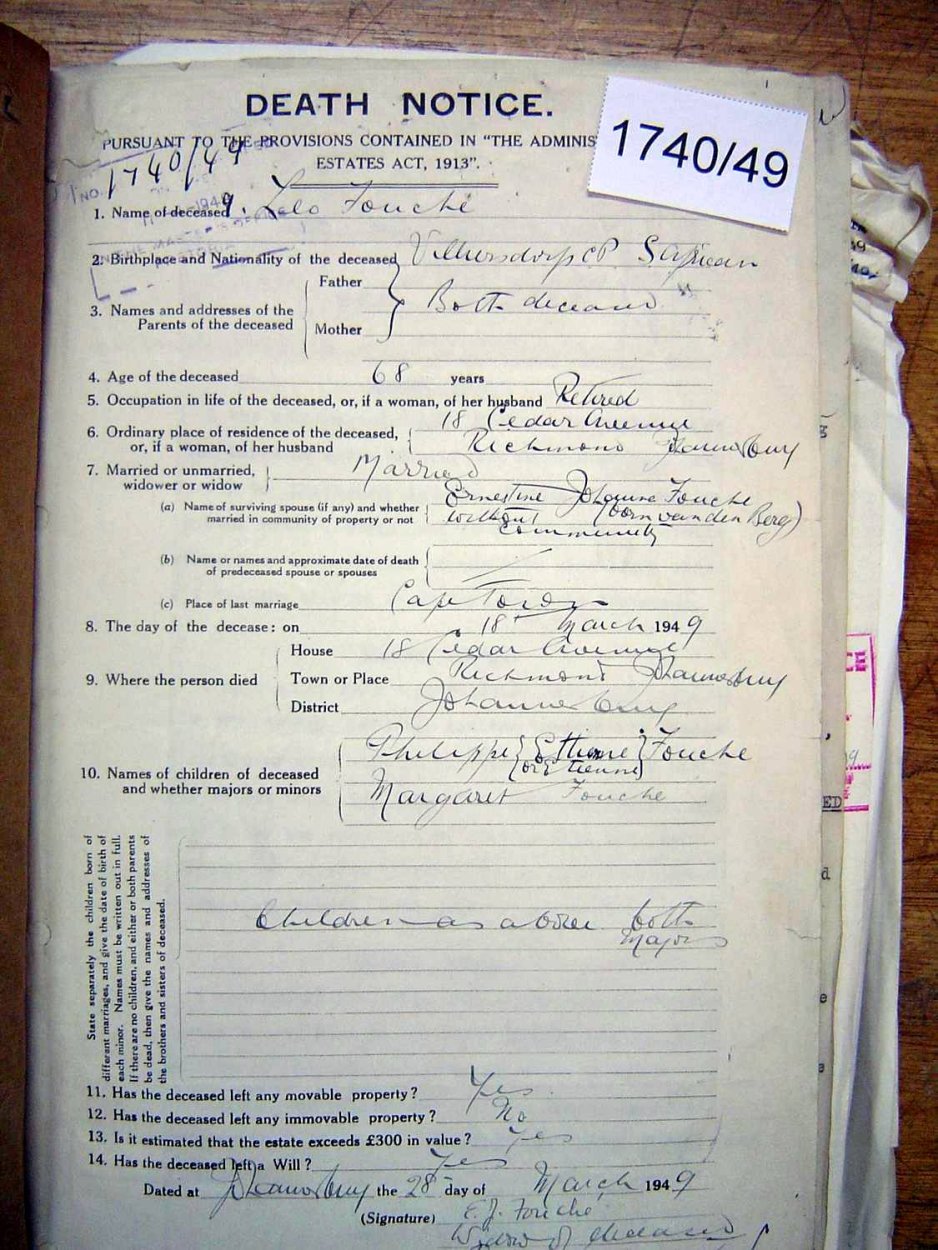 DEATH NOTICE.
PURSUANT TO THE PROVISIONS CONTAINED IN "THE ADMINIS
ESTATES ACT, 1913".
1740/49
NO. 1740/49
1. Name of deceased Leo Fouché
2. Birthplace and Nationality of the deceased Villiersdorp CP
3. Names and addresses of the Parents of the deceased
Father
Both deceased
Mother
4. Age of the deceased 68 years
5. Occupation in life of the deceased, or, if a woman, of her husband Retired
6. Ordinary place of residence of the deceased, 18 Cedar Avenue
or, if a woman, of her husband Richmond Johannesburg
7. Married or unmarried, widower or widow Married
(a) Name of surviving spouse (if any) and whether Ernestine Johanna Fouche
married in community of property or not without (born van den Berg)
Community
(b) Name or names and approximate date of death
of predeceased spouse or spouses
(c) Place of last marriage Cape Town
8. The day of the decease: on 18 March 1949
9. Where the person died
House 18 Cedar Avenue
Town or Place Richmond Johannesburg
District Johannesburg
10. Names of children of deceased
and whether majors or minors
Philippe Ethienne Fouche
(or Etienne)
Margaret Fouche
State separately the children born of
different marriages, and give the date of birth of
each minor. Names must be written out in full.
If there are no children, and either or both parents
be dead, then give the names and addresses of
the brothers and sisters of deceased.
Children as above both
majors
11. Has the deceased left any movable property? Yes
12. Has the deceased left any immovable property? No
13. Is it estimated that the estate exceeds £300 in value? Yes
14. Has the deceased left a Will? Yes
Dated at Johannesburg the 28 day of March 1949
(Signature) E. J. Fouché
Widow of deceased